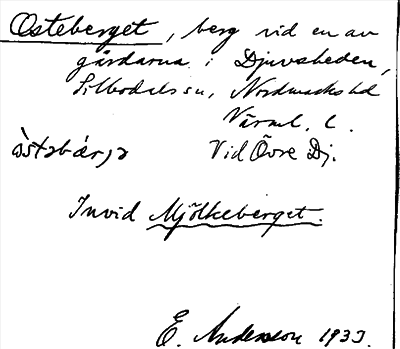 Osteberget, berg vid en av
gårdarna i Djuvsheden,
Silbodals sn, Nordmarks hd
Värml. l.
òstabárja Vid Övre Dj.
Invid Mjölkeberget.
E. Andersson 1933.